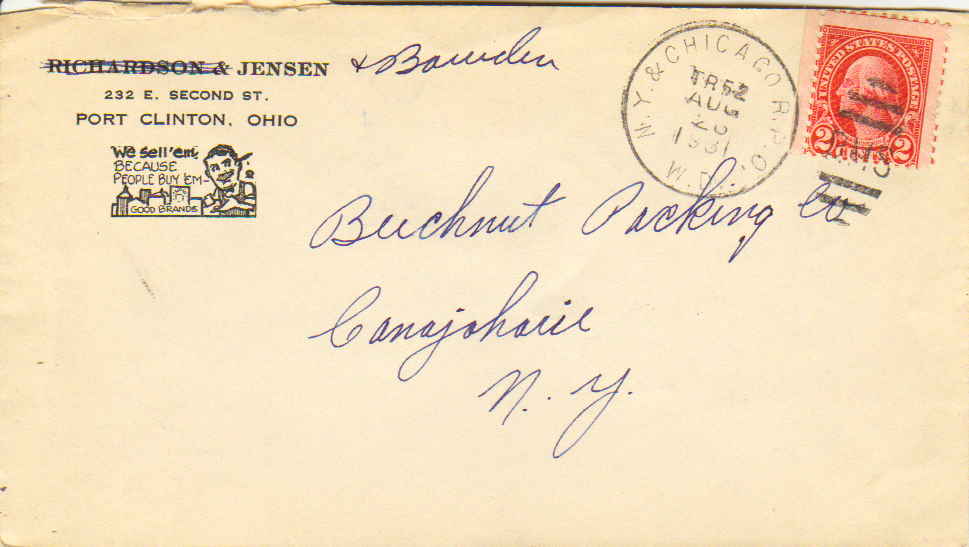 RICHARDSON & JENSEN & Bowden
232 E. SECOND ST.
PORT CLINTON, OHIO
We sell'em,
BECAUSE
PEOPLE BUY 'EM-
GOOD BRANDS
N.Y. & CHICAGO R.P.O.
TR52
AUG
1931
UNITED STATES POSTAGE
2 2
RMS
Beechnut Packing Co
Canajoharie
N.Y.